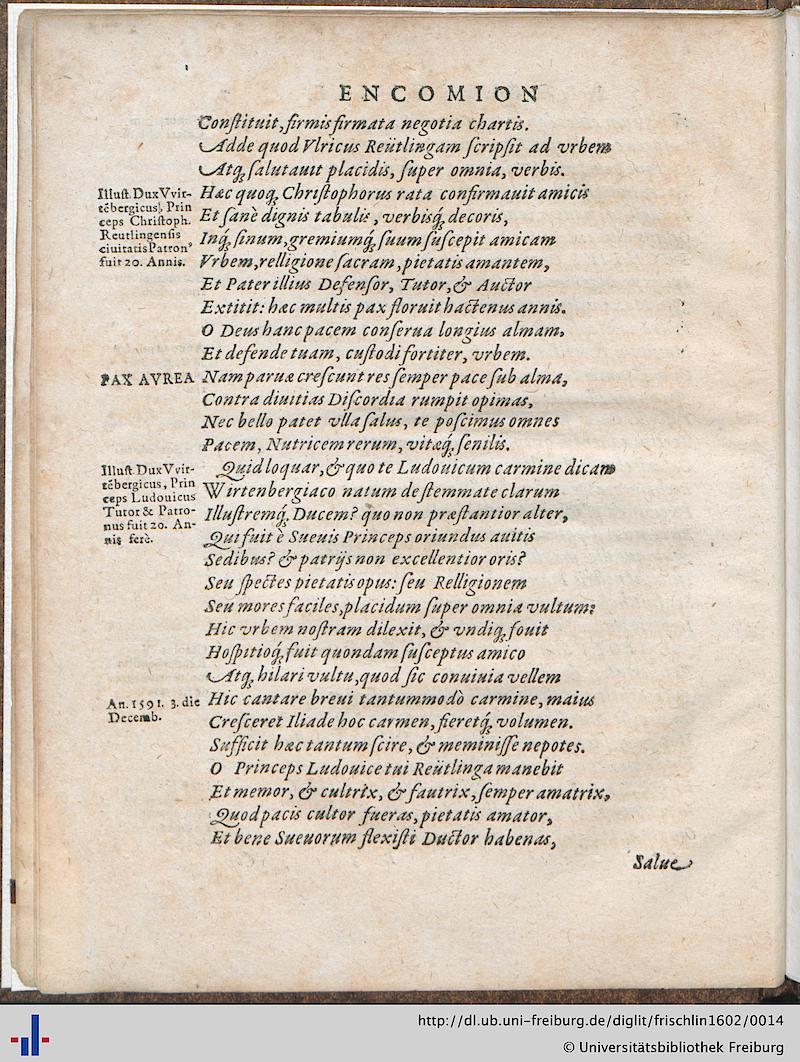 ENCOMION
Conſtituit, firmis firmata negotia chartis.
Adde quod Vlricus Reütlingam ſcripſit ad vrbem
Atq́; ſalutauit placidis, ſuper omnia, verbis.
Illuſt. Dux Vvir-
tẽbergicus, Prin
ceps Chriſtoph.
Reutlingenſis
ciuitatis Patronꝰ
fuit 20. Annis.
Hæc quoq́; Chriſtophorus rata confirmauit amicis
Et ſanè dignis tabulis, verbisq́; decoris,
Inq́; ſinum, gremiumq́; ſuum ſuſcepit amicam
Vrbem, relligione ſacram, pietatis amantem,
Et Pater illius Defenſor, Tutor, & Auctor
Extitit: hæc multis pax floruit hactenus annis.
O Deus hanc pacem conſerua longius almam,
Et defende tuam, cuſtodi fortiter, vrbem.
PAX AVREA
Nam paruæ creſcunt res ſemper pace ſub alma,
Contra diuitias Diſcordia rumpit opimas,
Nec bello patet vlla ſalus, te poſcimus omnes
Pacem, Nutricem rerum, vitæq́; ſenilis.
Illuſt Dux Vvir-
tẽbergicus, Prin
ceps Ludouicus
Tutor & Patro-
nus fuit 20. An-
nis ferè.
Quid loquar, & quo te Ludouicum carmine dicam
Wirtenbergiaco natum de ſtemmate clarum
Illuſtremq́; Ducem? quo non præſtantior alter,
Qui fuit è Sueuis Princeps oriundus auitis
Sedibus? & patrijs non excellentior oris?
Seu ſpectes pietatis opus: ſeu Relligionem
Seu mores faciles, placidum ſuper omnia vultum?
Hic vrbem noſtram dilexit, & vndiq́; fouit
Hoſpitioq́; fuit quondam ſuſceptus amico
Atq́; hilari vultu, quod ſic conuiuia vellem
An. 1591. 3. die
Decemb.
Hic cantare breui tantummodò carmine, maius
Creſceret Iliade hoc carmen, fieretq́; volumen.
Sufficit hæc tantum ſcire, & meminiſſe nepotes.
O Princeps Ludouice tui Reütlinga manebit
Et memor, & cultrix, & fautrix, ſemper amatrix,
Quod pacis cultor fueras, pietatis amator,
Et bene Sueuorum flexiſti Ductor habenas,
Salue
http://dl.ub.uni-freiburg.de/diglit/frischlin1602/0014
© Universitätsbibliothek Freiburg